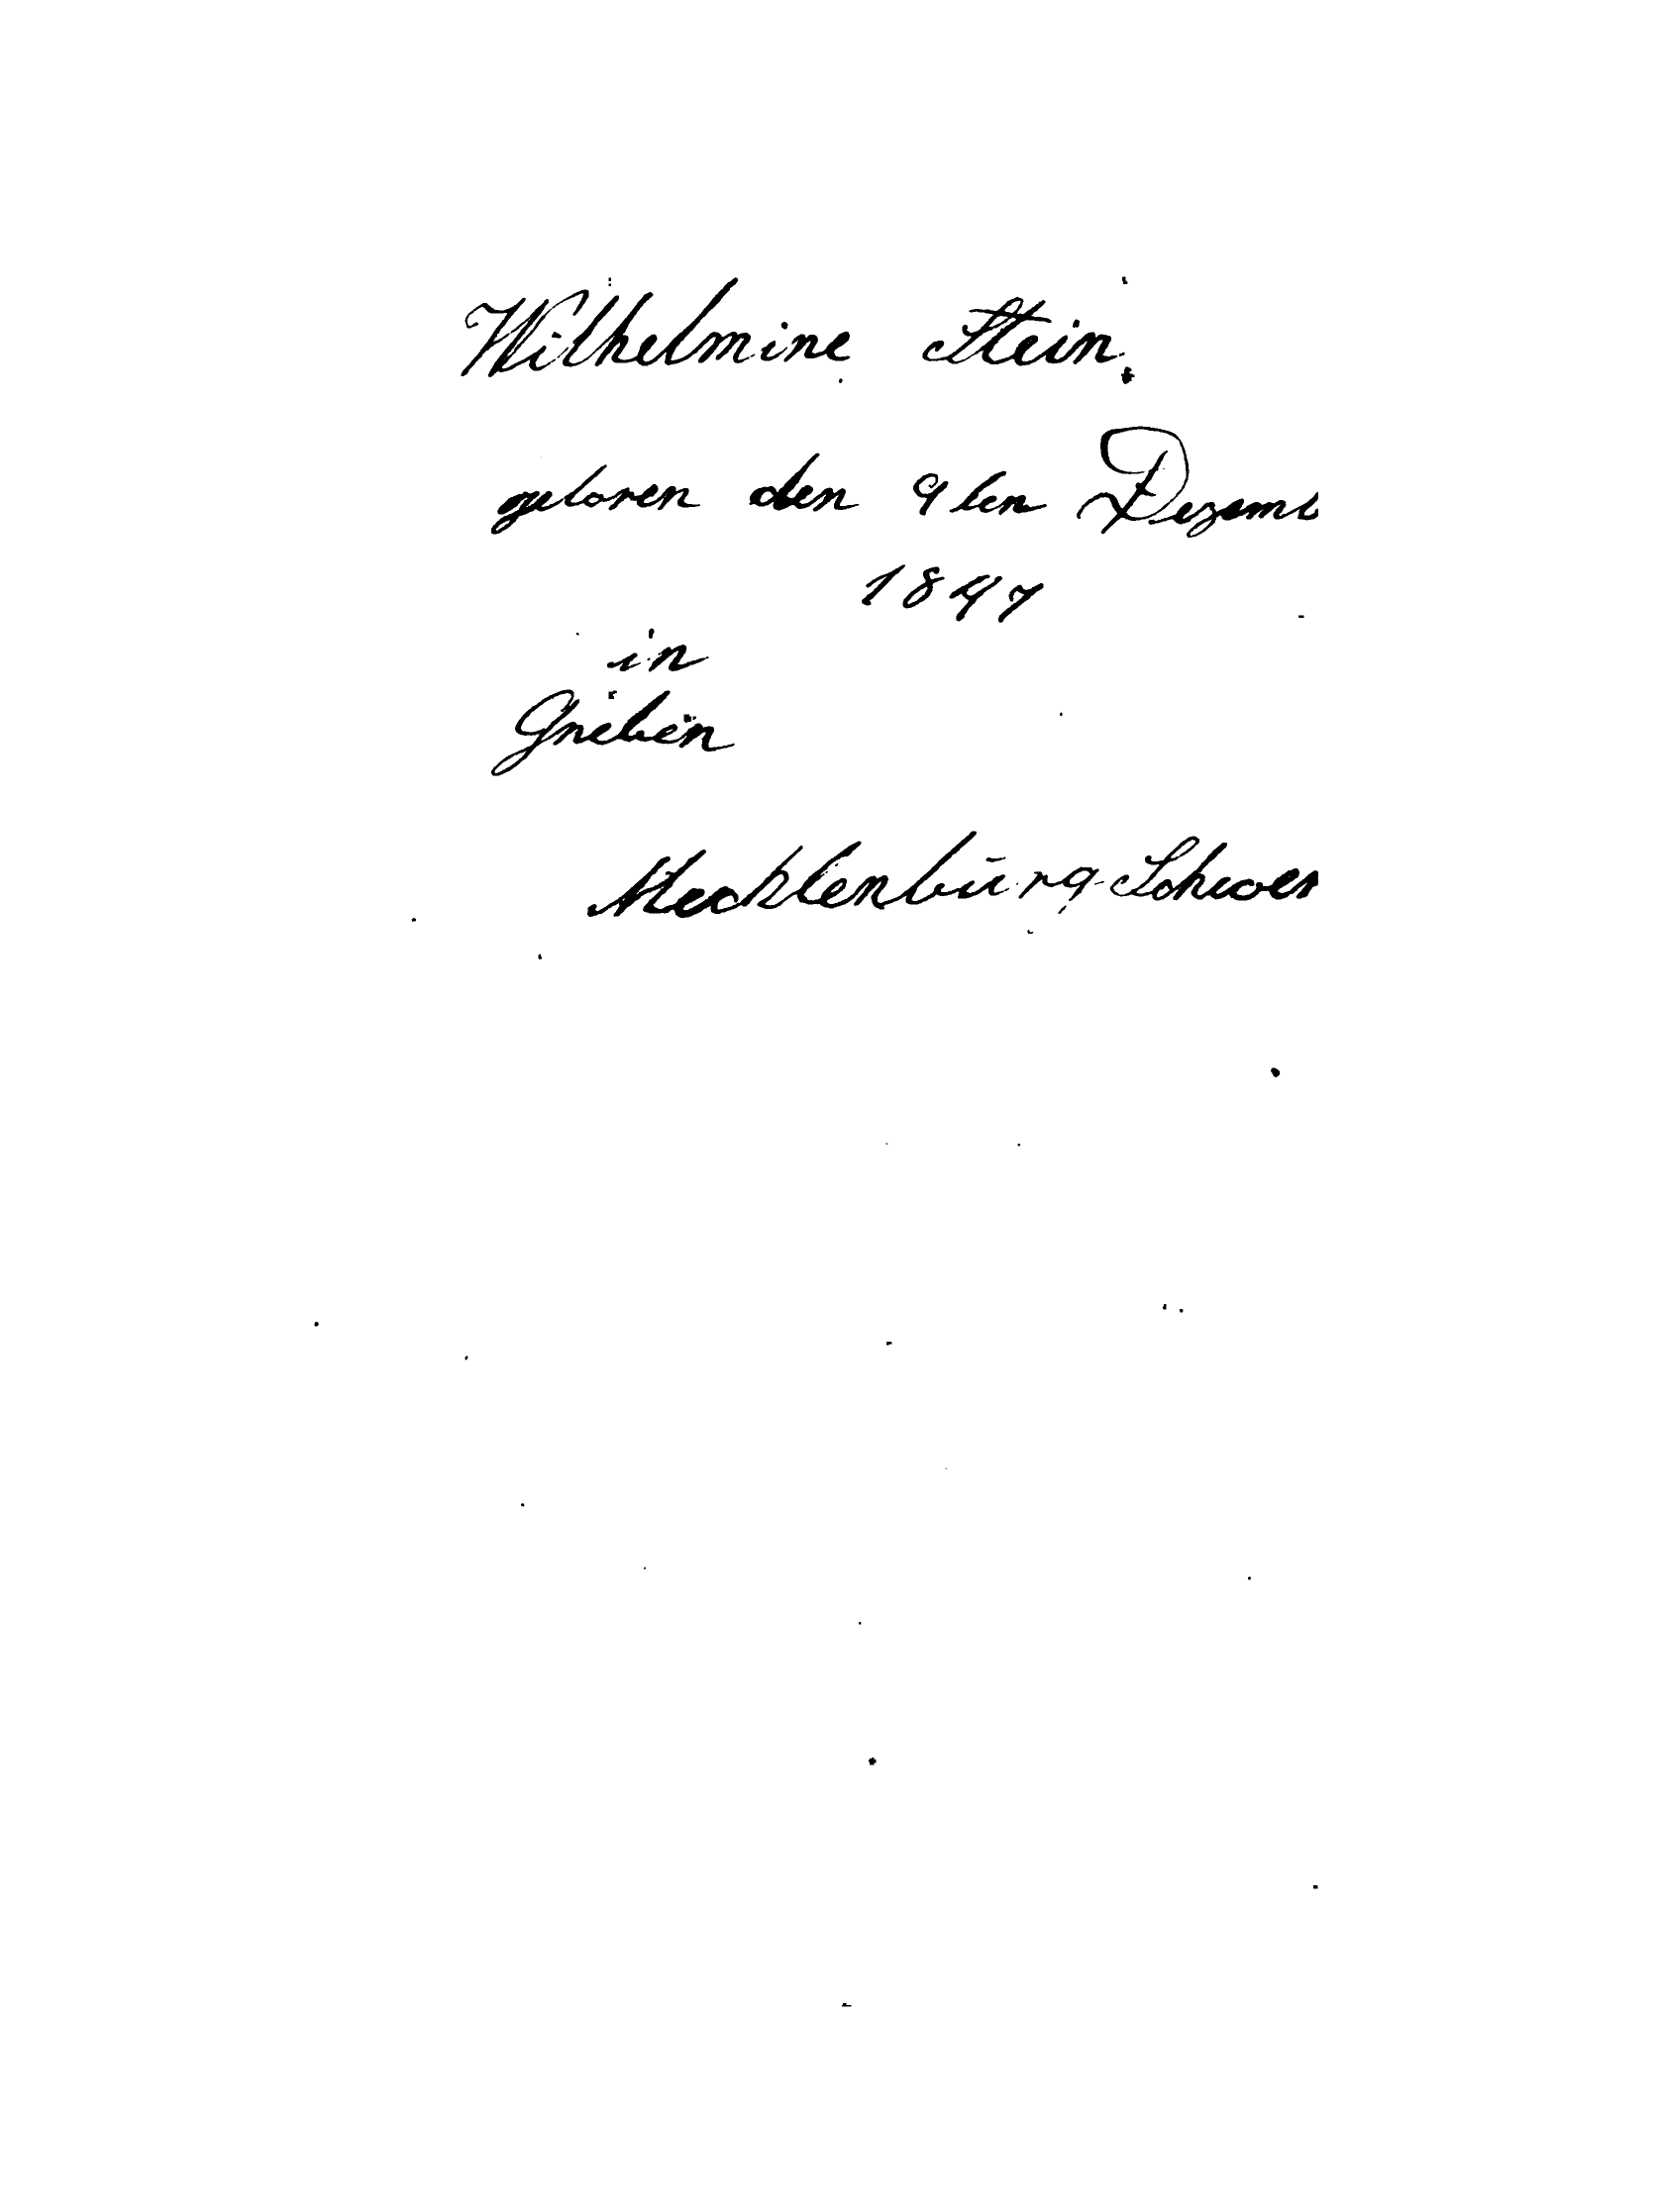 Wilhelmine Stein.
geboren den 9ten Dezemb
1847
in
Greben
Mecklenburg-Schwer